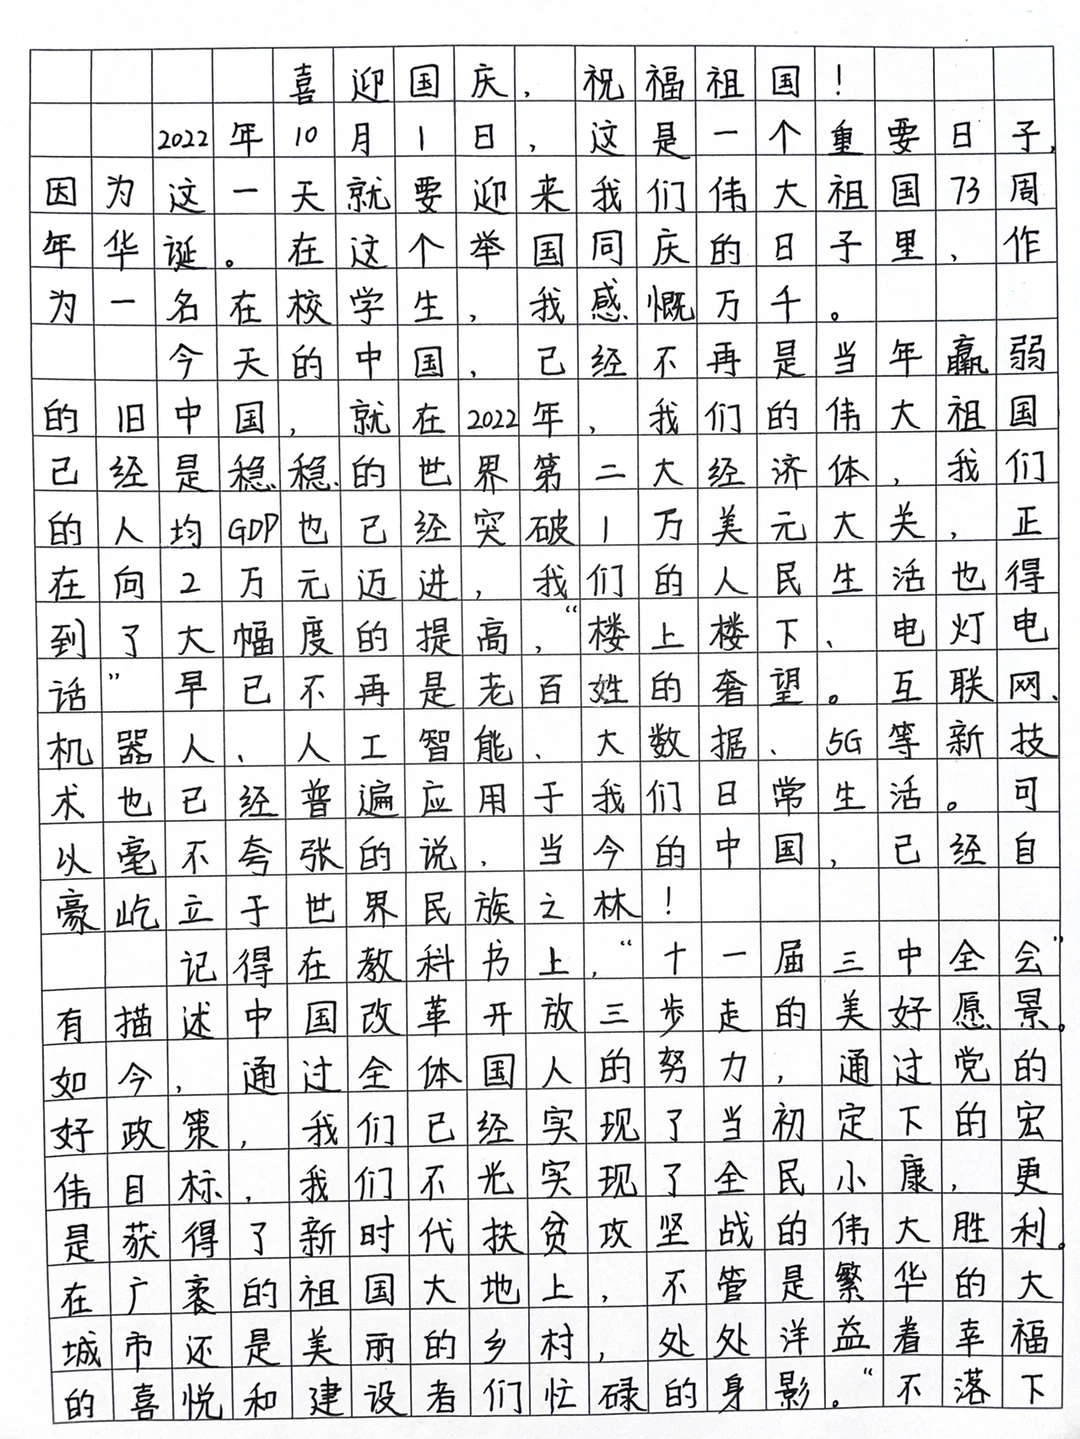 喜迎国庆，祝福祖国！
2022年10月1日，这是一个重要日子，
因为这一天就要迎来我们伟大祖国73周
年华诞。在这个举国同庆的日子里，作
为一名在校学生，我感慨万千。
今天的中国，已经不再是当年羸弱
的旧中国，就在2022年，我们的伟大祖国
已经是稳稳的世界第二大经济体，我们
的人均GDP也已经突破1万美元大关，正
在向2万元迈进，我们的人民生活也得
到了大幅度的提高，“楼上楼下、电灯电
话”早已不再是老百姓的奢望。互联网、
机器人、人工智能、大数据、5G等新技
术也已经普遍应用于我们日常生活。可
以毫不夸张的说，当今的中国，已经自
豪屹立于世界民族之林！
记得在教科书上，“十一届三中全会”
有描述中国改革开放三步走的美好愿景。
如今，通过全体国人的努力，通过党的
好政策，我们已经实现了当初定下的宏
伟目标，我们不光实现了全民小康，更
是获得了新时代扶贫攻坚战的伟大胜利。
在广袤的祖国大地上，不管是繁华的大
城市还是美丽的乡村，处处洋益着幸福
的喜悦和建设者们忙碌的身影。“不落下